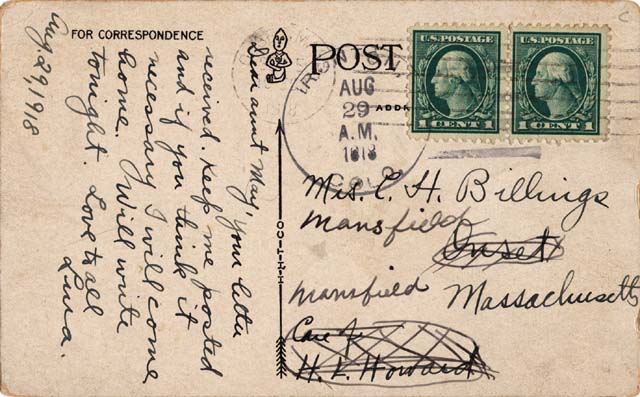 Aug. 29, 1918
FOR CORRESPONDENCE
Dear aunt May, your letter
received. Keep me posted
and if you think it
necessary I will come
home. Will write
tonight Love to all
Lura.
POST
ADDR
AUG
29
A.M.
1918
COLO
U.S. POSTAGE
1 CENT 1
U.S. POSTAGE
1 CENT 1
OCITIHI
Mrs. C. H. Billings
Mansfield
Onset
Mansfield Massachusett
Care of
H. L. Howard